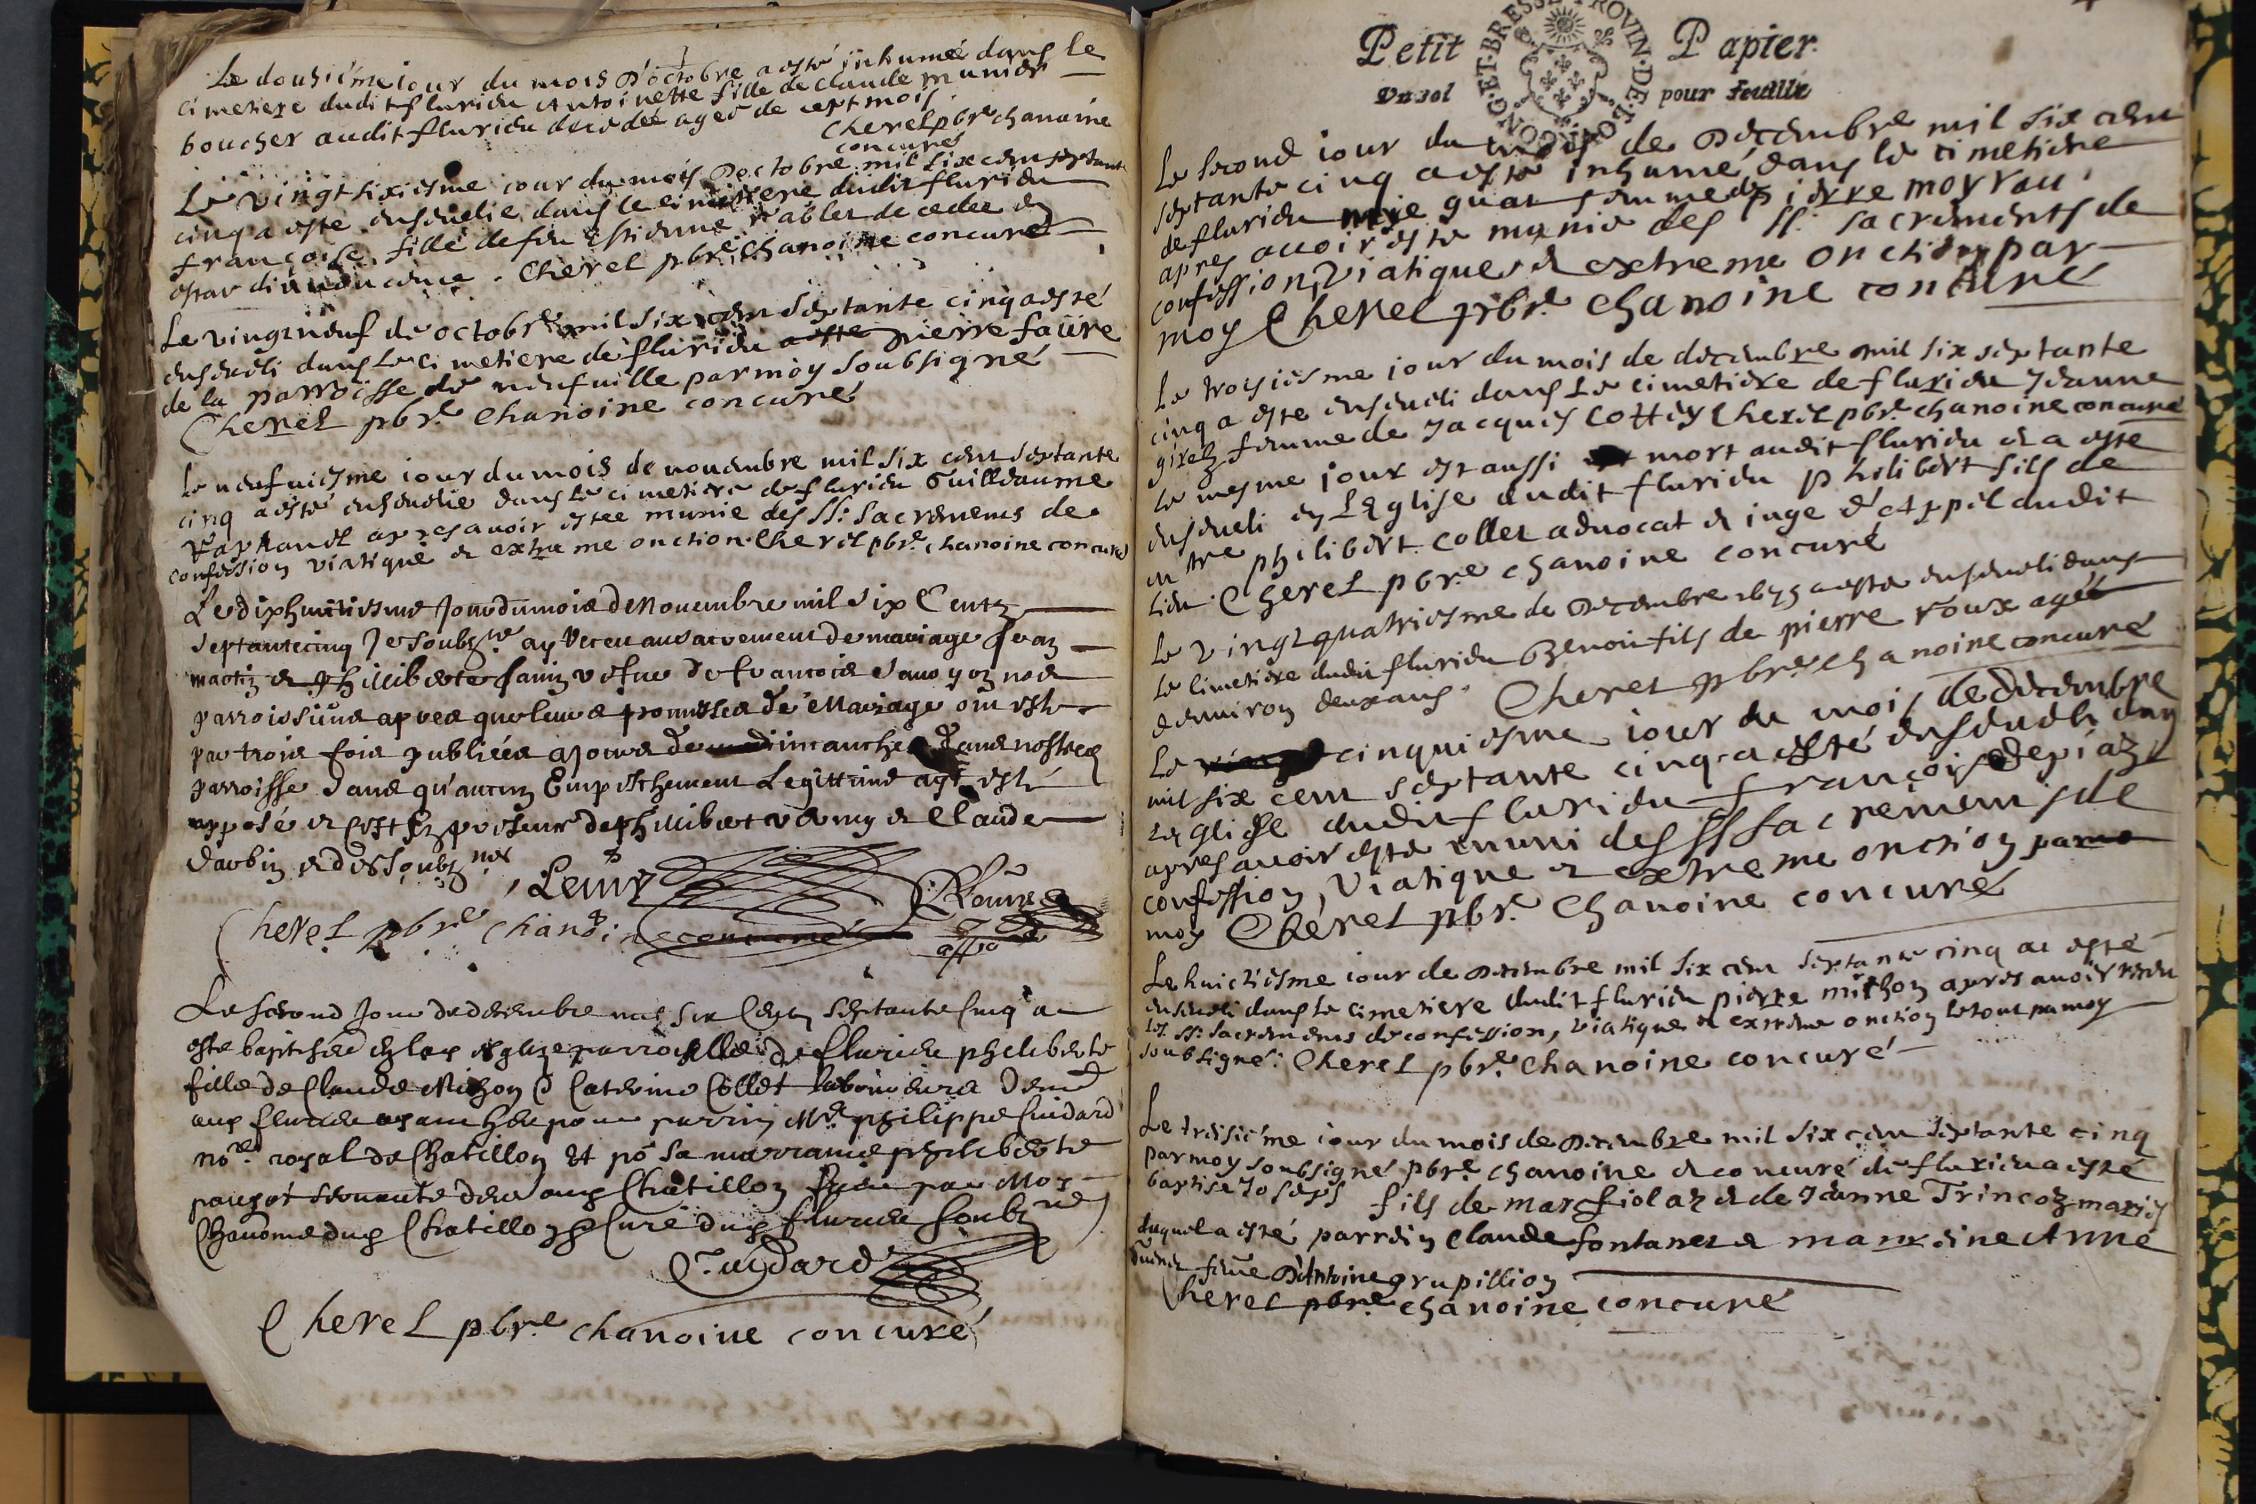 Le dousiéme iour du mois d'octobre a esté inhumeé dans le
cimetiere dudit flurieu Antoinette fille de Claude munier
boucher audit flurieu decedeé ageé de sept mois
Cherel pbre chanoine
concuré
Le vingt sixiesme iour du mois d'octobre mil six cent septante
cinq a esté enseuelie dans le cimetiere dudit flurieu
françoise fille de feu Estienne
Cherel pbre chanoine concuré
Le vingt neuf de octobre mil six cent septante cinq a esté
enseueli dans le cimetiere de flurieu pierre faure
de la parroisse de neufuille par moy soubsigné
Cherel pbre chanoine concuré
Le neufuiesme iour du mois de nouembre mil six cent septante
cinq a esté enseuelie dans le cimetiere de flurieu Guilleaume
apres auoir estee munie des SS: Sacremens de
confession viatique et extreme onction. Cherel pbre chanoine concuré
Le dixhuitiesme jour du mois de Nouembre mil six Centz
septantecinq Je soubzne ay Receu au sacrement de mariage Jean
martin et Philliberte fauin vefue de francois sauoyon nos
parroissiens apres que leurs promesses de Mariage ont esté
par trois fois publiées a jours de dimanche dans nostre
parroisse sans qu'aucun Empeschement Legittime ayt esté
opposé et Cest En presence de Phillibert remy et Claude
darbin et des Soubznes
Cherel pbre chanoine concuré
Le second Jour de decembre mil six Cent septante Cinq a
esté baptisée en leglize parrochelle de flurieu philiberte
fille de Claude Michon & Caterine Collet laboureurs dem
aud flurieu ayant heu pour parrin Me philippe Guidard
nore royal de Chatillon Et po sa marraine philiberte
seruante dem aud Chatillon par Moy
Chanoine dud Chatillon & Curé dud flurieu Soubzne
Guidard
Cherel pbre chanoine concuré
Petit Papier
Un sol pour feuille
ET·BRESSE PROVIN·DE·BOURGONG
Le second iour du mois de Decembre mil six cent
septante cinq a esté inhumé dans le cimetiere
de flurieu femme de pierre moyrou
apres auoir esté munie des SS: sacrements de
confession, viatique et extreme onction par
moy Cherel pbre chanoine concuré
Le troisiesme iour du mois de decembre mil six septante
cinq a esté enseueli dans le cimetiere de flurieu Jeanne
girelz femme de Jacques Cottey Cherel pbre chanoine concuré
Le mesme jour est aussi mort audit flurieu et a esté
enseueli en LEglise dudit flurieu philibert fils de
philibert collet aduocat et iuge d'appel dudit
lieu. Cherel pbre chanoine concuré
Le vingt quatriesme de Decembre 1675 a esté enseueli dans
le cimetiere dudit flurieu Benoit fils de pierre roux ageé
d'enuiron deux ans. Cherel pbre chanoine concuré
Le cinquiesme iour du mois de decembre
mil six cent septante cinq a esté enseueli dans
Leglise dudit flurieu françois
apres auoir esté muni des SS sacremens de
confession, viatique et extreme onction par
moy Cherel pbre chanoine concuré
Le huictiesme iour de Decembre mil six cent septante cinq a esté
enseueli dans le cimetiere dudit flurieu pierre michon apres auoir receu
les SS: sacremens de confession, viatique et extreme onction le tout par moy
soubsigné: Cherel pbre chanoine concuré
Le treisiéme iour du mois de Decembre mil six cent septante cinq
par moy soubsigné pbre chanoine et concuré de flurieu a esté
baptisé Joseph fils de marc fiolaz et de Jeanne Trincoz mariés
duquel a esté parrein Claude fontanet et marreine Anne
feme d'Antoine grupillion
Cherel pbre chanoine concuré